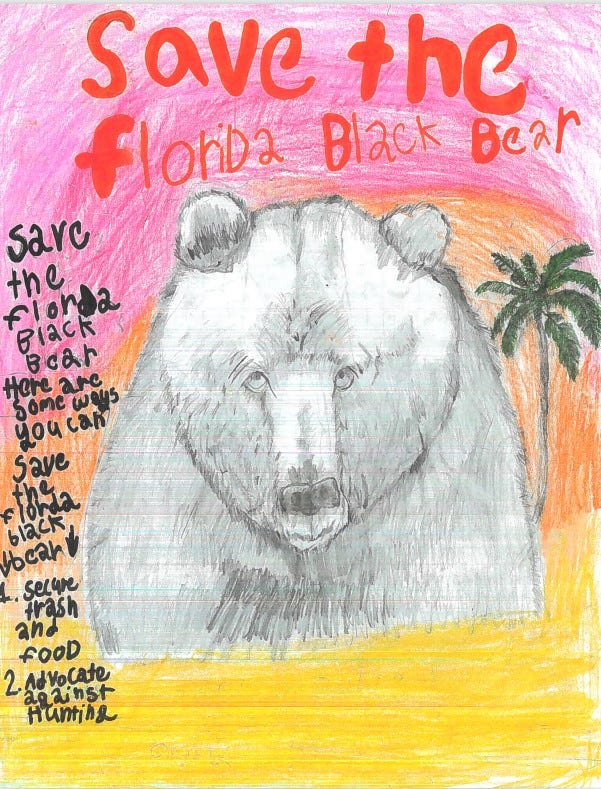 Save the
Florida Black Bear
Save
the
florida
Black
Bear
Here are
some ways
you can
Save
the
florida
black
↓bear↓
1. secure
trash
and
FOOD
2. Advocate
against
Hunting